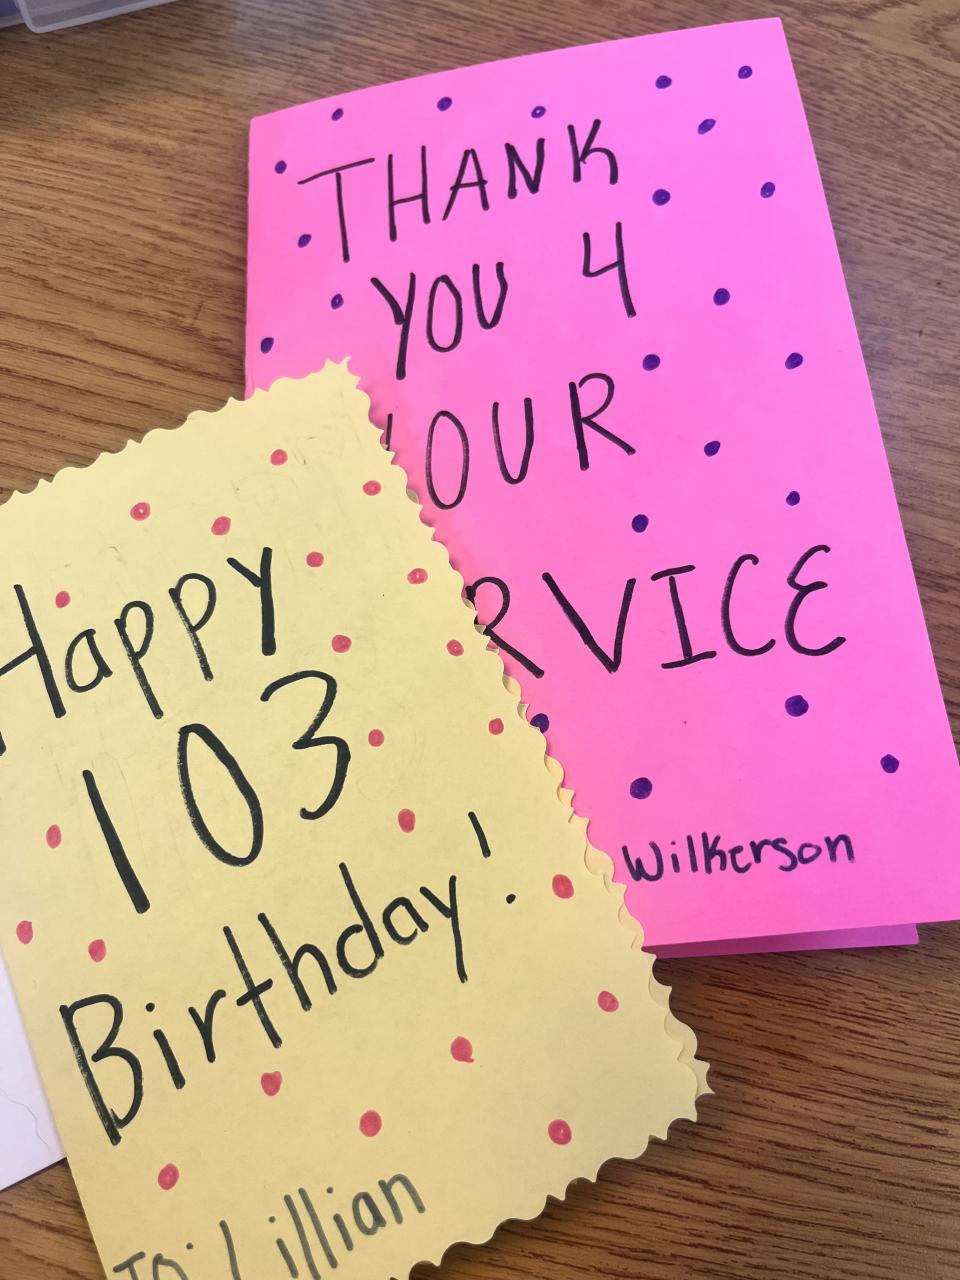 THANK
YOU 4
YOUR
RVICE
Wilkerson
Happy
103
Birthday!
To: Lillian